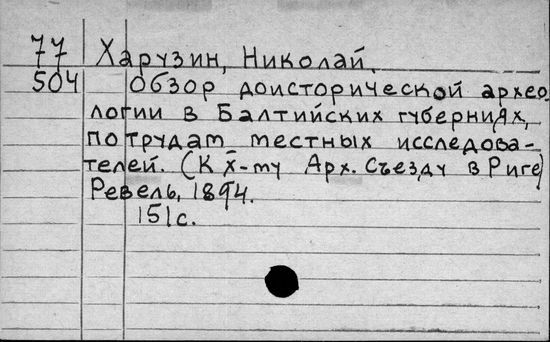 77 Харузин, Николай,
504 Обзор доисторической архео
логии в Балтийских губерниях,
по трудам местных исследова-
телей. (К X-му Арх. Съезду в Риге)
Ревель, 1894.
151 с.